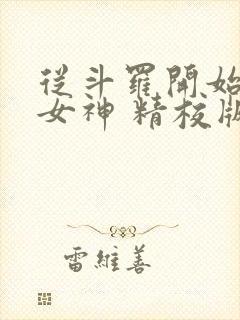 從斗羅開始
女神 精校版
雷維善